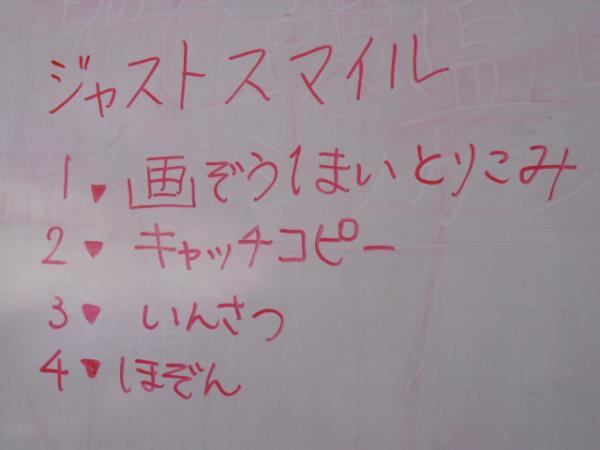 ジャストスマイル
1 ♥ 画ぞう1まいとりこみ
2 ♥ キャッチコピー
3 ♥ いんさつ
4 ♥ ほぞん